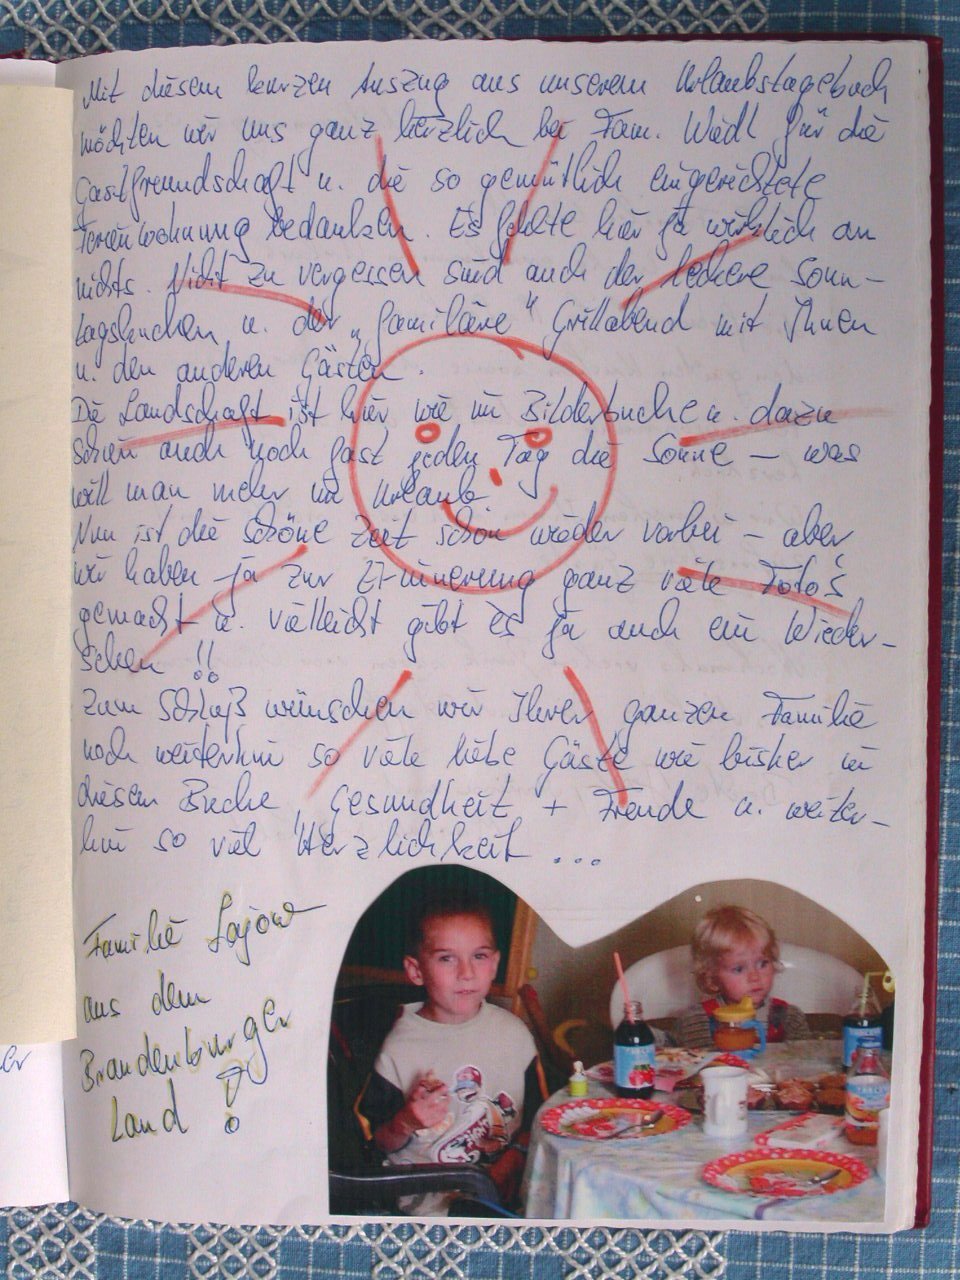 Mit diesem kurzen Auszug aus unserem Urlaubstagebuch
möchten wir uns ganz herzlich bei Fam. Wedl für die
Gastfreundschaft u. die so gemütlich eingerichtete
Ferienwohnung bedanken. Es fehlte hier ja wirklich an
nichts. Nicht zu vergessen sind auch der leckere Sonn-
tagskuchen u. der „familäre" Grillabend mit Ihnen
u. den anderen Gästen.
Die Landschaft ist hier wie im Bilderbuche u. dazu
schien auch noch fast jeden Tag die Sonne – was
will man mehr im Urlaub
Nun ist die schöne Zeit schon wieder vorbei – aber
wir haben ja zur Erinnerung ganz viele Foto's
gemacht u. vielleicht gibt es ja auch ein Wieder-
sehen !!
Zum Schluß wünschen wir Ihrer ganzen Familie
noch weiterhin so viele liebe Gäste wie bisher in
diesem Buche, Gesundheit + Freude u. weiter-
hin so viel Herzlichkeit ...
Familie
aus dem
Brandenburger
Land !
er